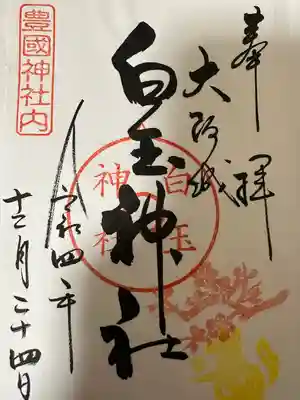 奉拝
大阪城
白玉神社
白玉
神社
豊國神社内
令和四年
十二月二十四日